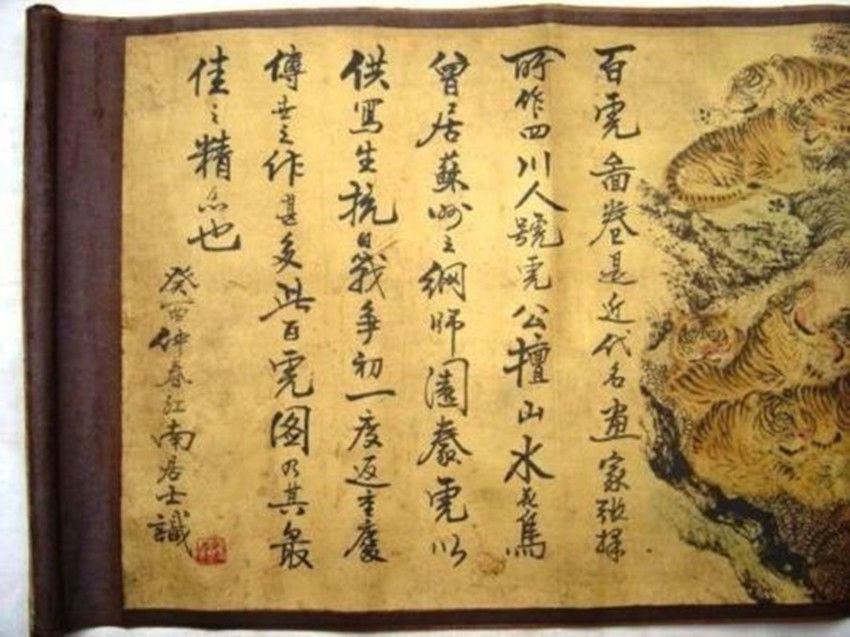 百虎畵卷是近代名画家張擇
所作四川人號虎公擅山水花鳥
曾居蘇州之網師園養虎以
供寫生抗日戰爭初一度返重慶
傳世之作甚多此百虎图乃其最
佳之精品也
癸酉仲春江南居士識